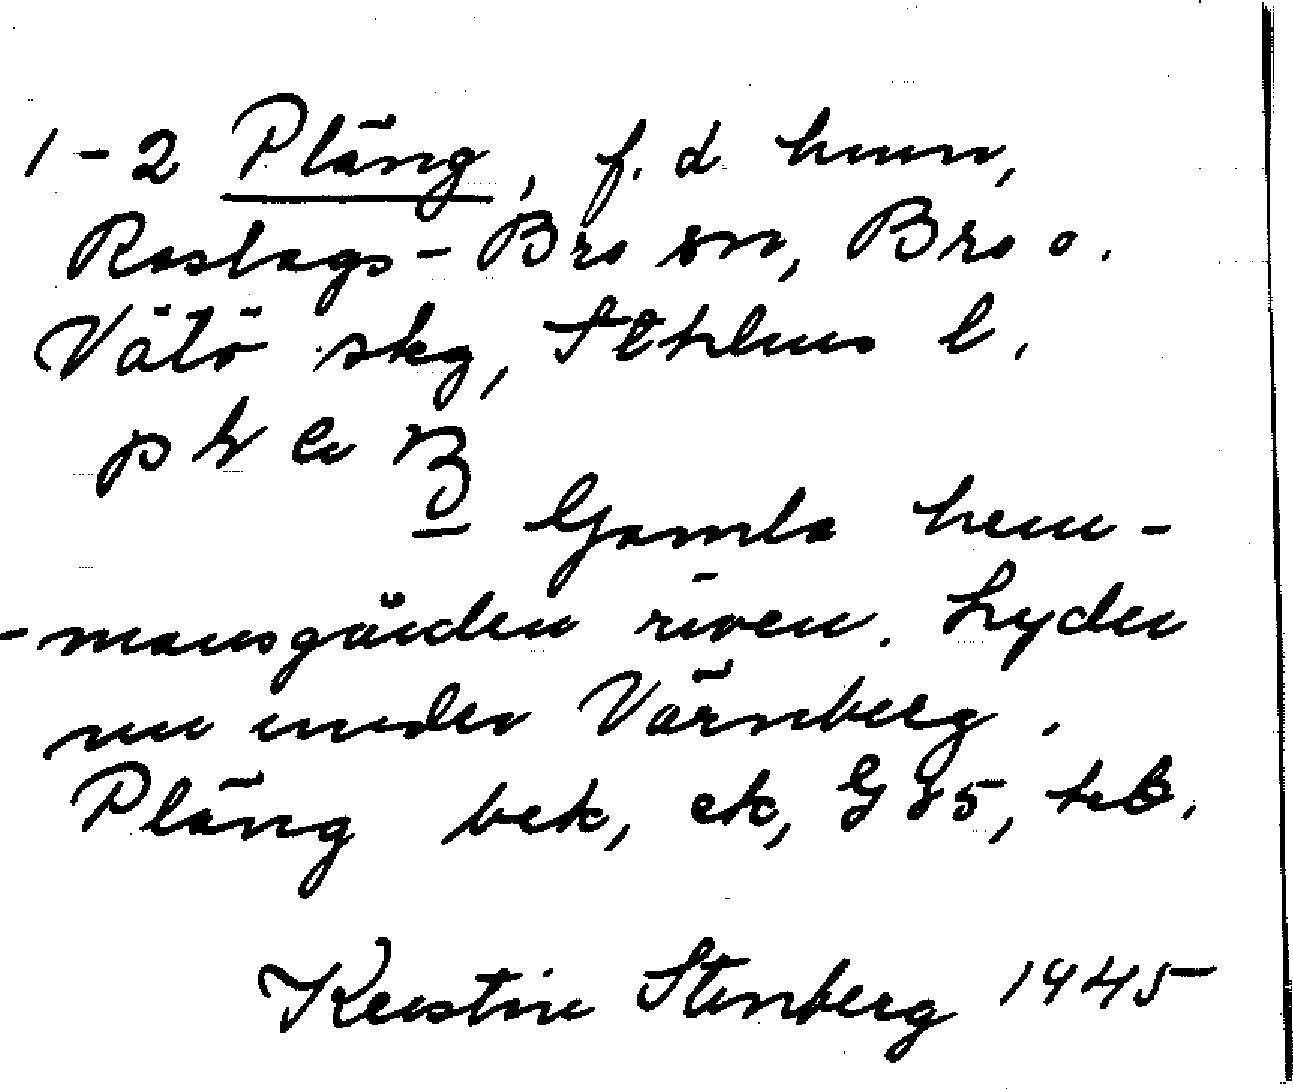 1-2 Pläng, f.d hmn,
Roslags-Bro sn, Bro o.
Vätö skg, Sthlms l.
Gamla hem-
-mansgården riven. Lyder
nu under Värnberg.
Pläng bek, ek, G 35,
Kerstin Stenberg 1945